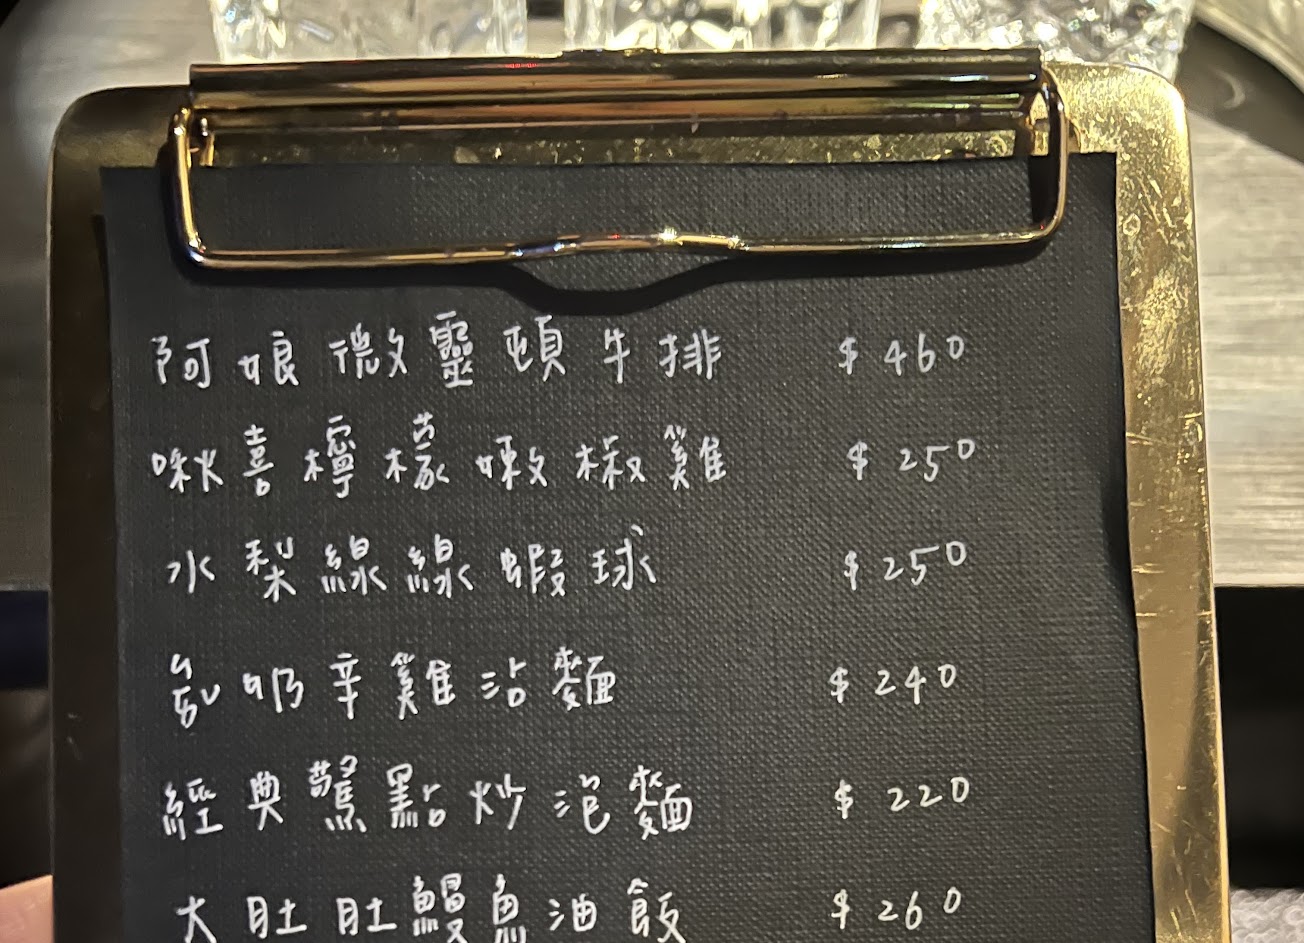 阿娘微靈頓牛排 $460
啾喜檸檬嫩椒雞 $250
水梨線線蝦球 $250
奶辛雞沾麵 $240
經典驚點炒泡麵 $220
大肚肚鰻魚油飯 $260